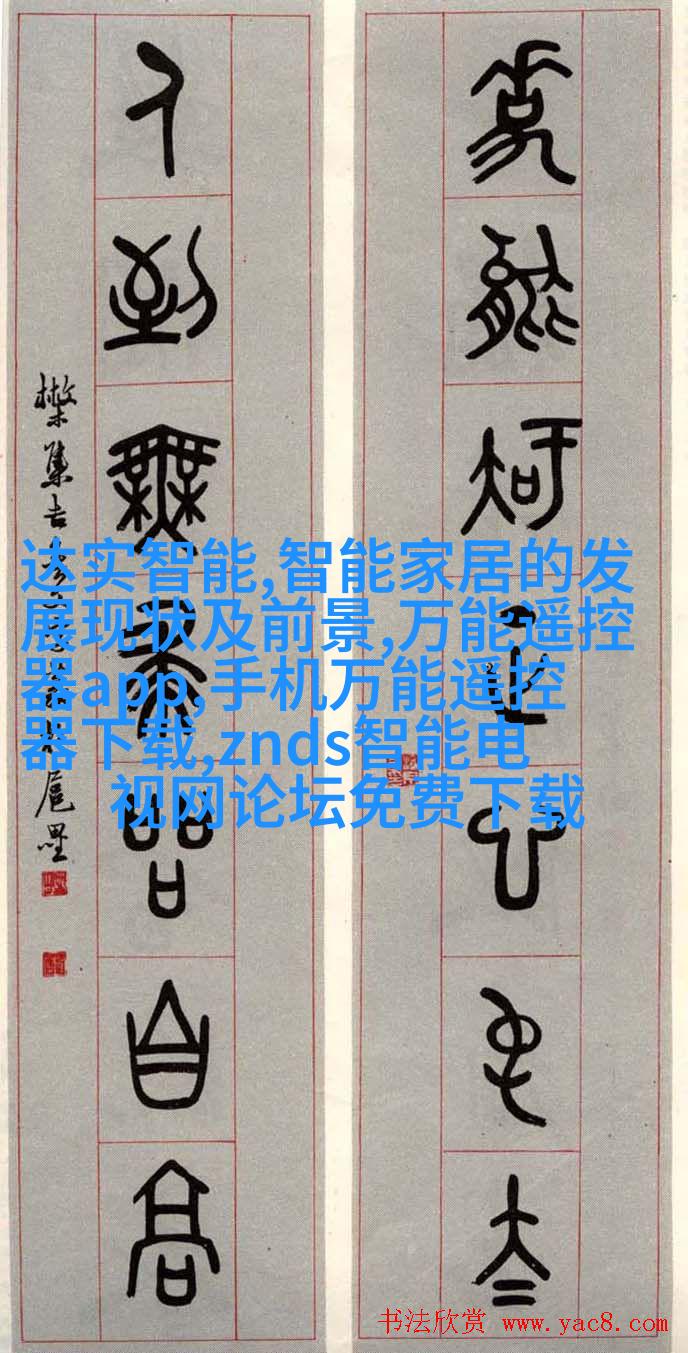 達实智能,智能家居的发
展现状及前景,万能遥控
器app,手机万能遥控
器下载,znds智能电
视网论坛免费下载
爲能知心夳
人到無品自高
集古
书法欣赏 www.yac8.com